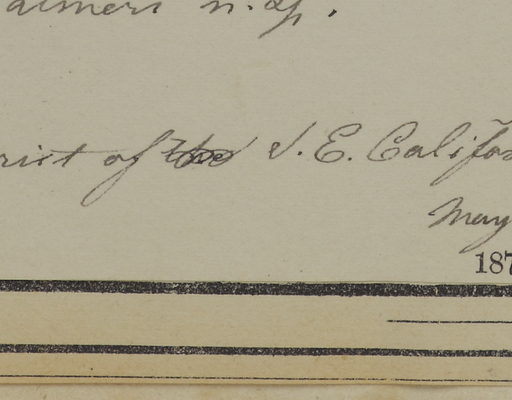 almers N.Y.
rict of the S. E. Califor
May
187